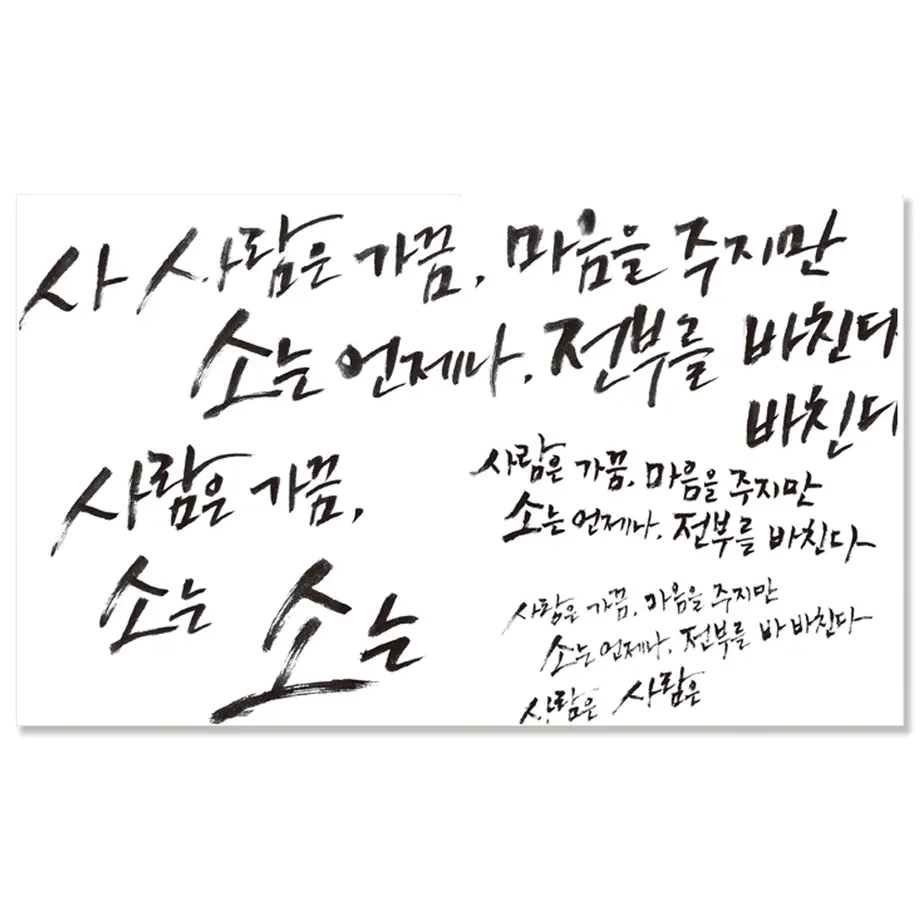 사 사람은 가끔, 마음을 주지만
소는 언제나, 전부를 바친다
바친다
사람은 가끔,
소는 소는
사람은 가끔, 마음을 주지만
소는 언제나, 전부를 바친다
사람은 가끔, 마음을 주지만
소는 언제나, 전부를 바 바친다
사람은 사람은